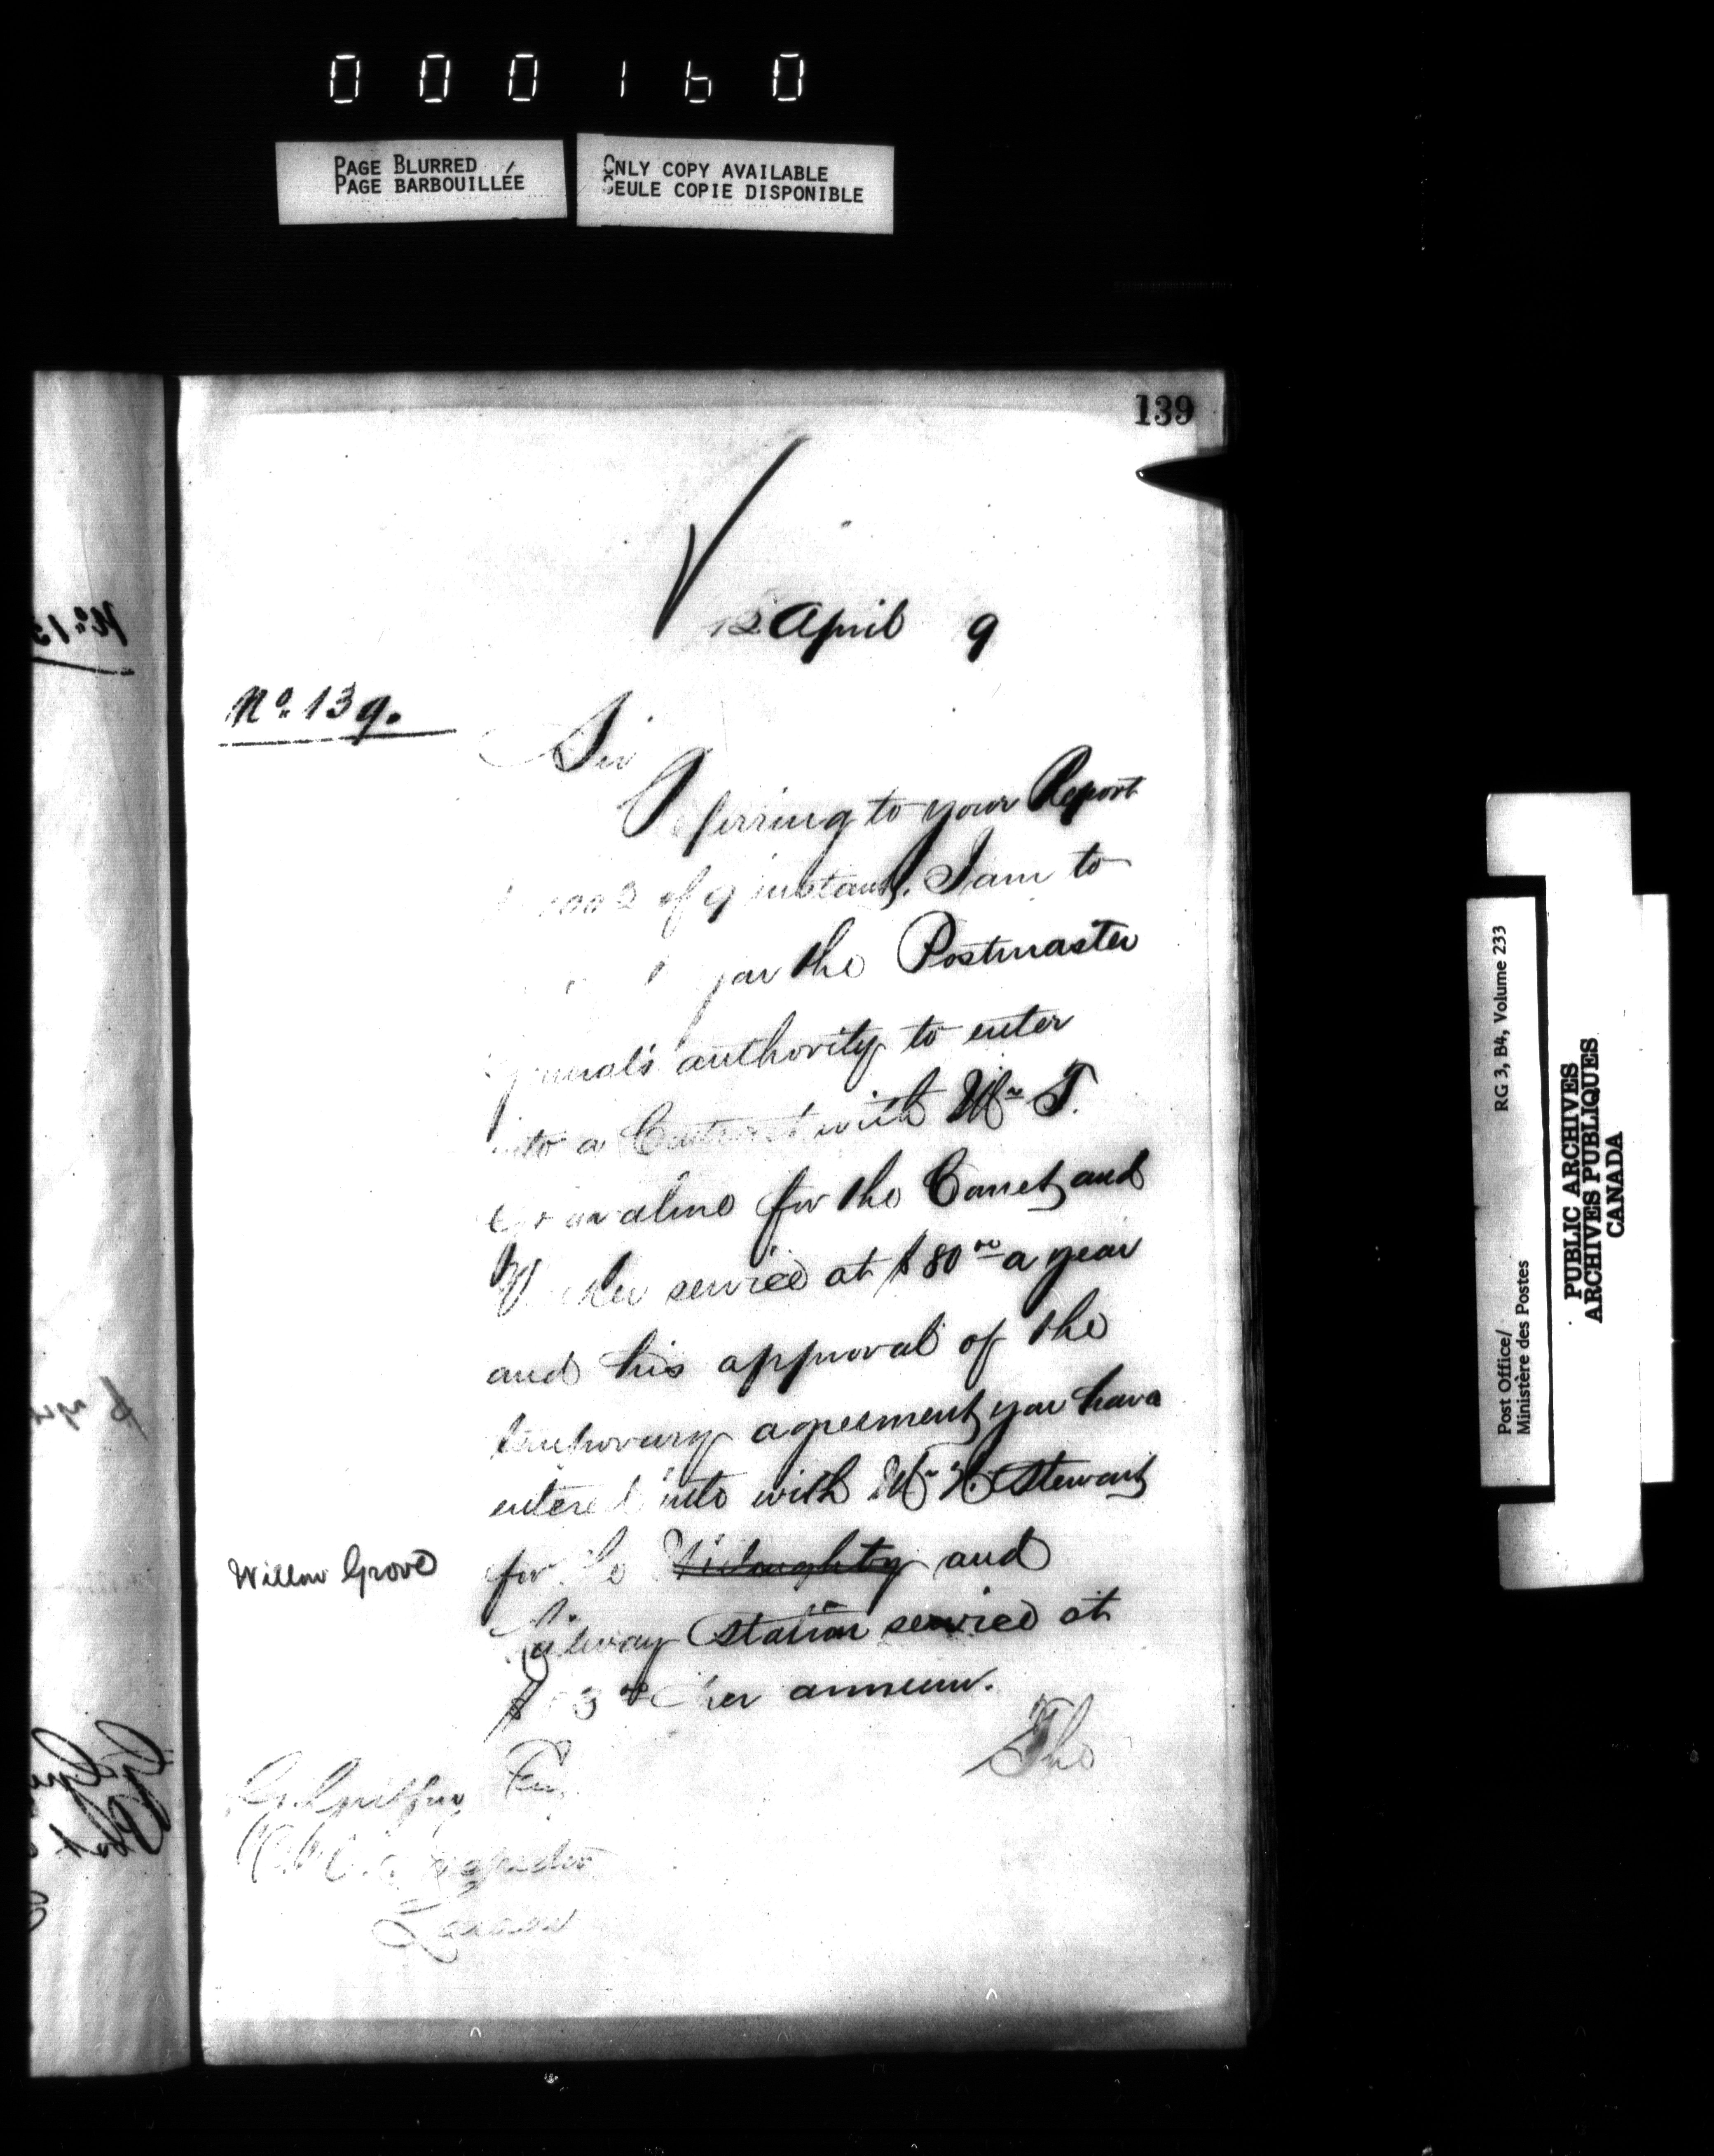 000160
PAGE BLURRED
PAGE BARBOUILLÉE
ONLY COPY AVAILABLE
SEULE COPIE DISPONIBLE
139
12 April 9
No. 139.
Sir
Referring to your Report
of 9 instant, I am to
the Postmaster
General's authority to enter
into a Contract with Mr T.
for the Comet and
service at $80 00 a year
and his approval of the
temporary agreement you have
entered into with Mr H. Stewart
Willow Grove
for the and
Railway Station service at
per annum.
The
G. Griffin Esq
P.O. Inspector
London
RG 3, B4, Volume 233
Post Office/
Ministère des Postes
PUBLIC ARCHIVES
ARCHIVES PUBLIQUES
CANADA